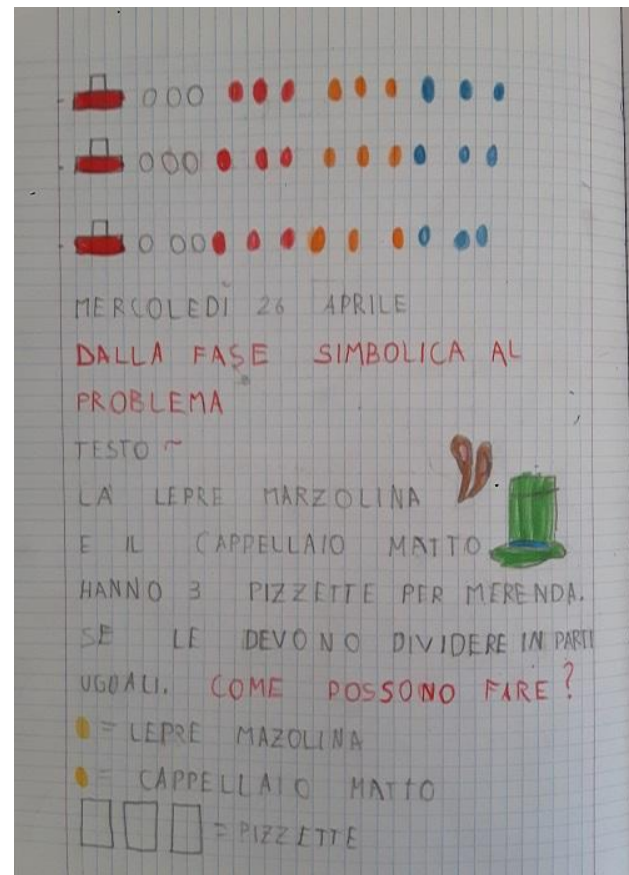 MERCOLEDÌ 26 APRILE
DALLA FASE SIMBOLICA AL
PROBLEMA
TESTO ~
LA LEPRE MARZOLINA
E IL CAPPELLAIO MATTO
HANNO 3 PIZZETTE PER MERENDA.
SE LE DEVONO DIVIDERE IN PARTI
UGUALI. COME POSSONO FARE?
= LEPRE MAZOLINA
= CAPPELLAIO MATTO
= PIZZETTE